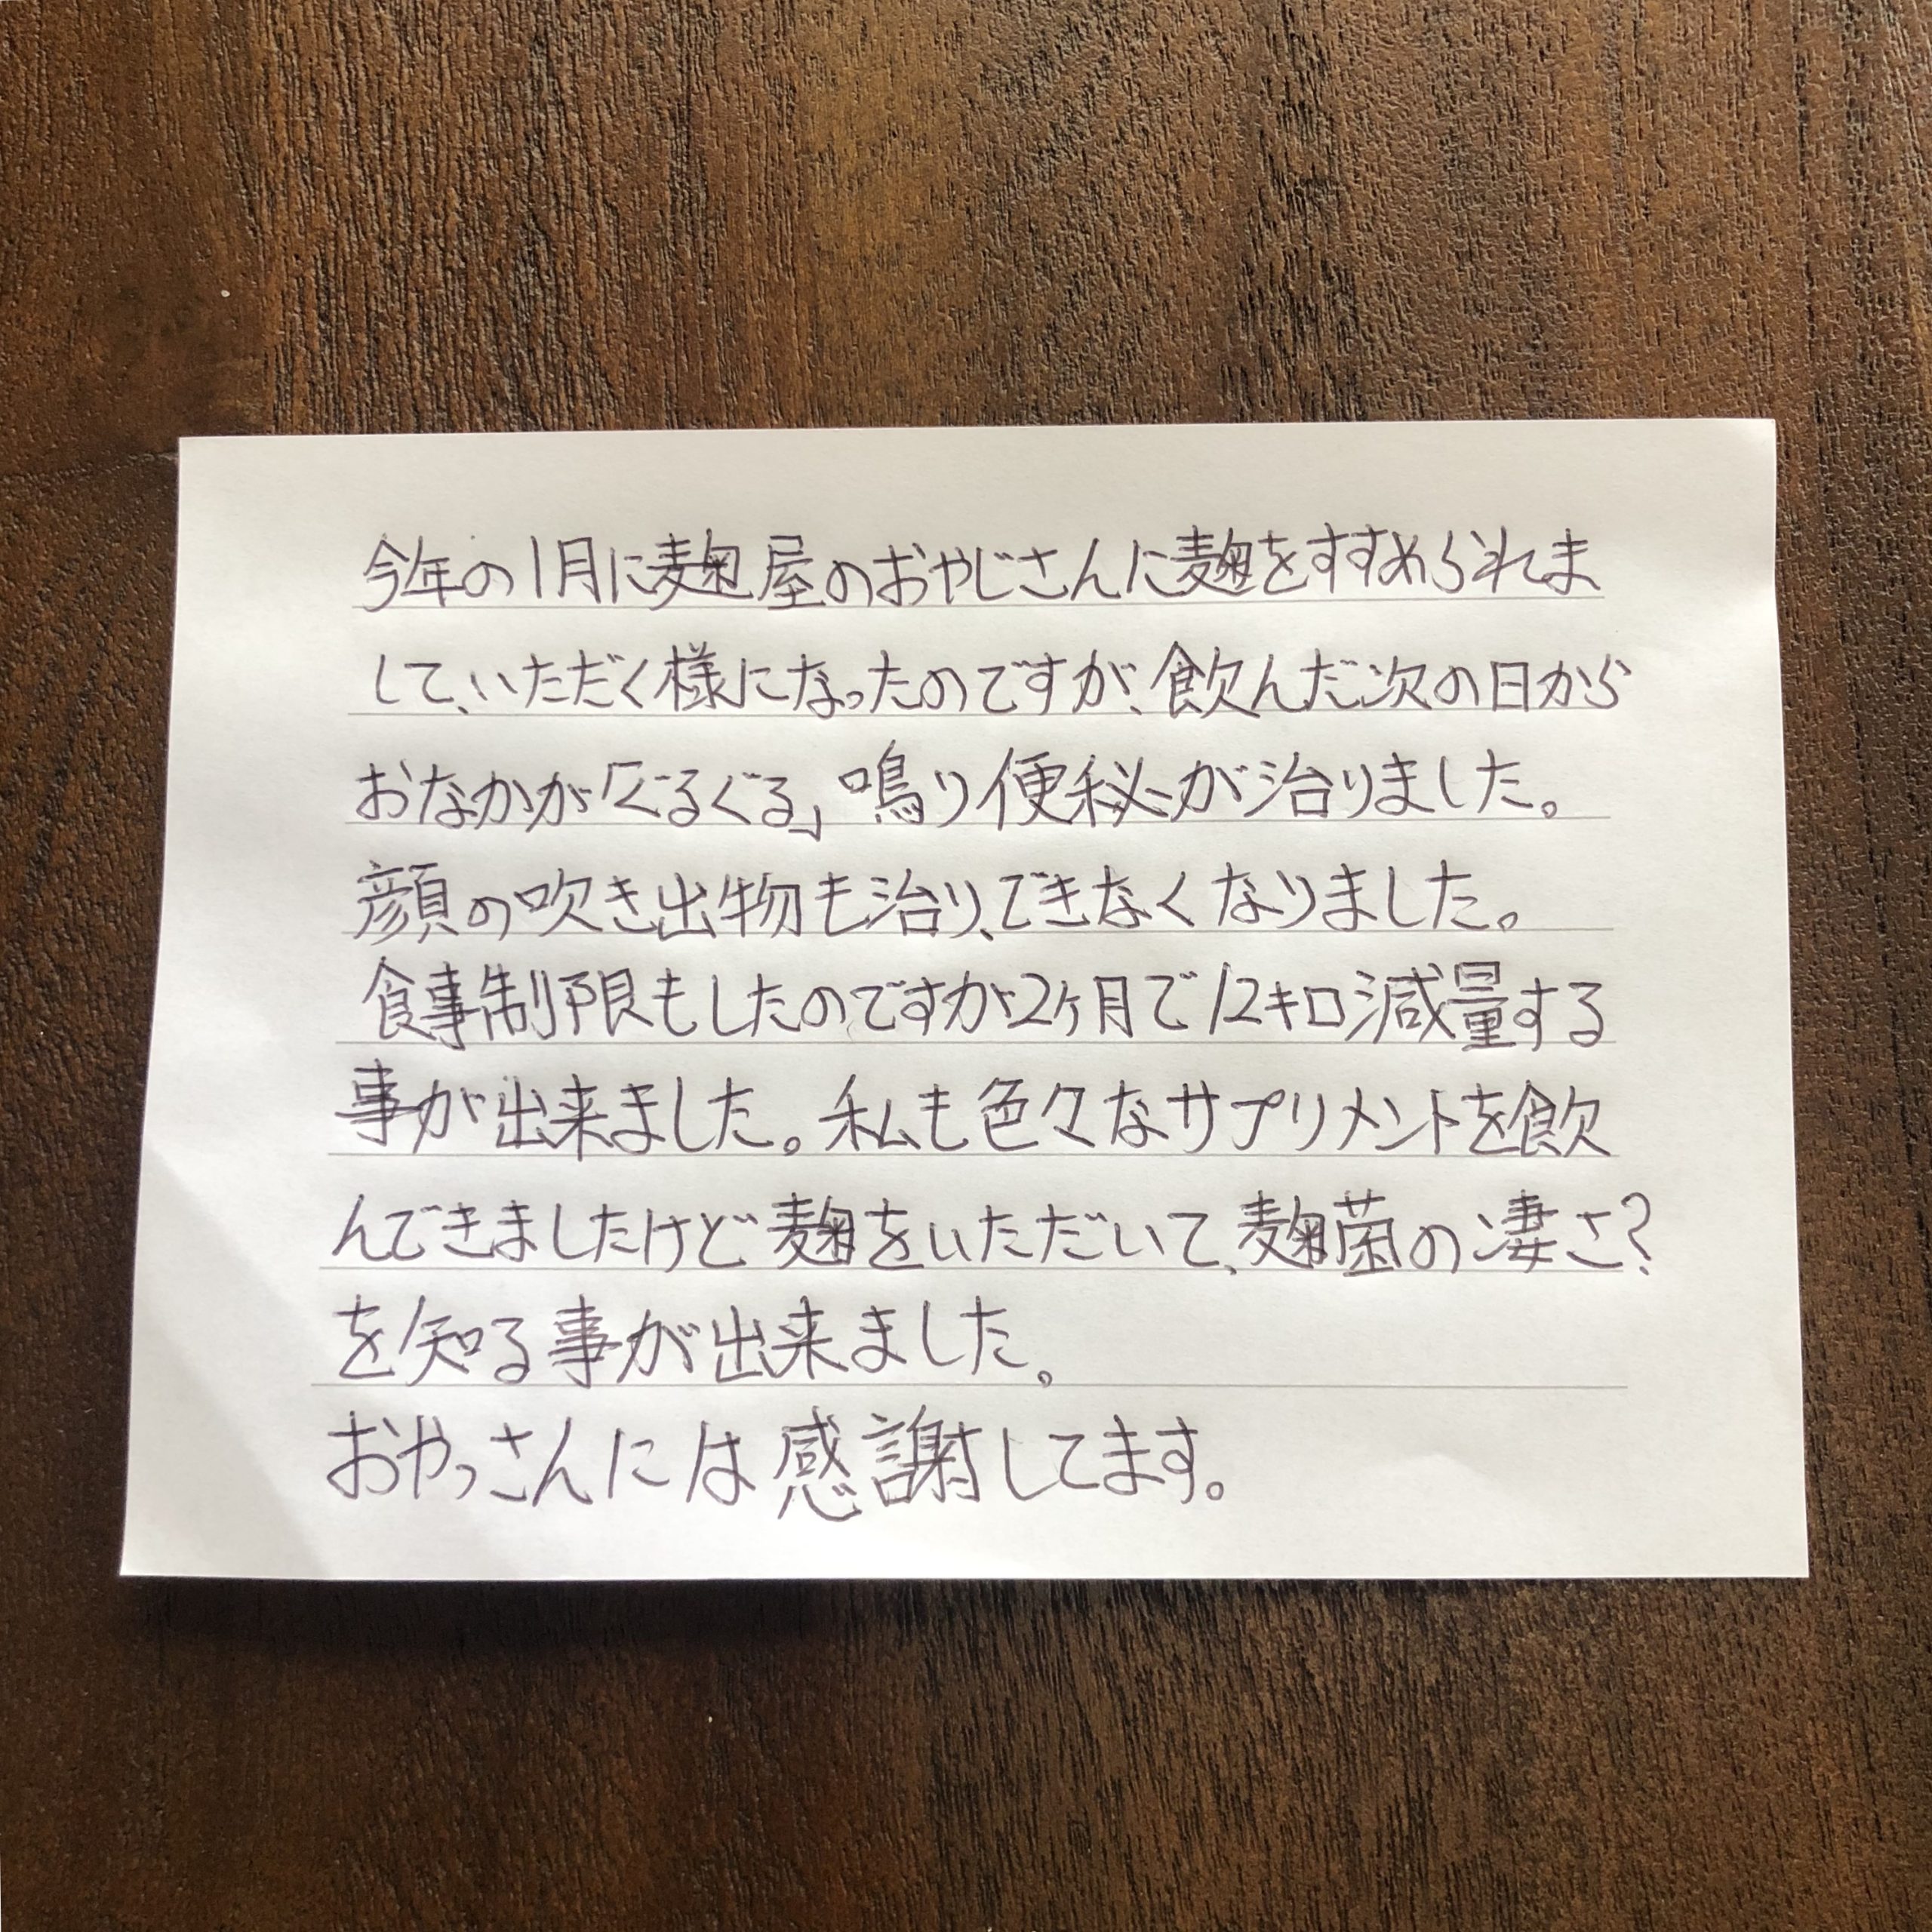 今年の1月に麹屋のおやじさんに麹をすすめられま
して、いただく様になったのですが、飲んだ次の日から
おなかが「ぐるぐる」鳴り便秘が治りました。
顔の吹き出物も治り、できなくなりました。
食事制限もしたのですが2ヶ月で12キロ減量する
事が出来ました。私も色々なサプリメントを飲
んできましたけど麹をいただいて、麹菌の凄さ?
を知る事が出来ました。
おやっさんには感謝してます。